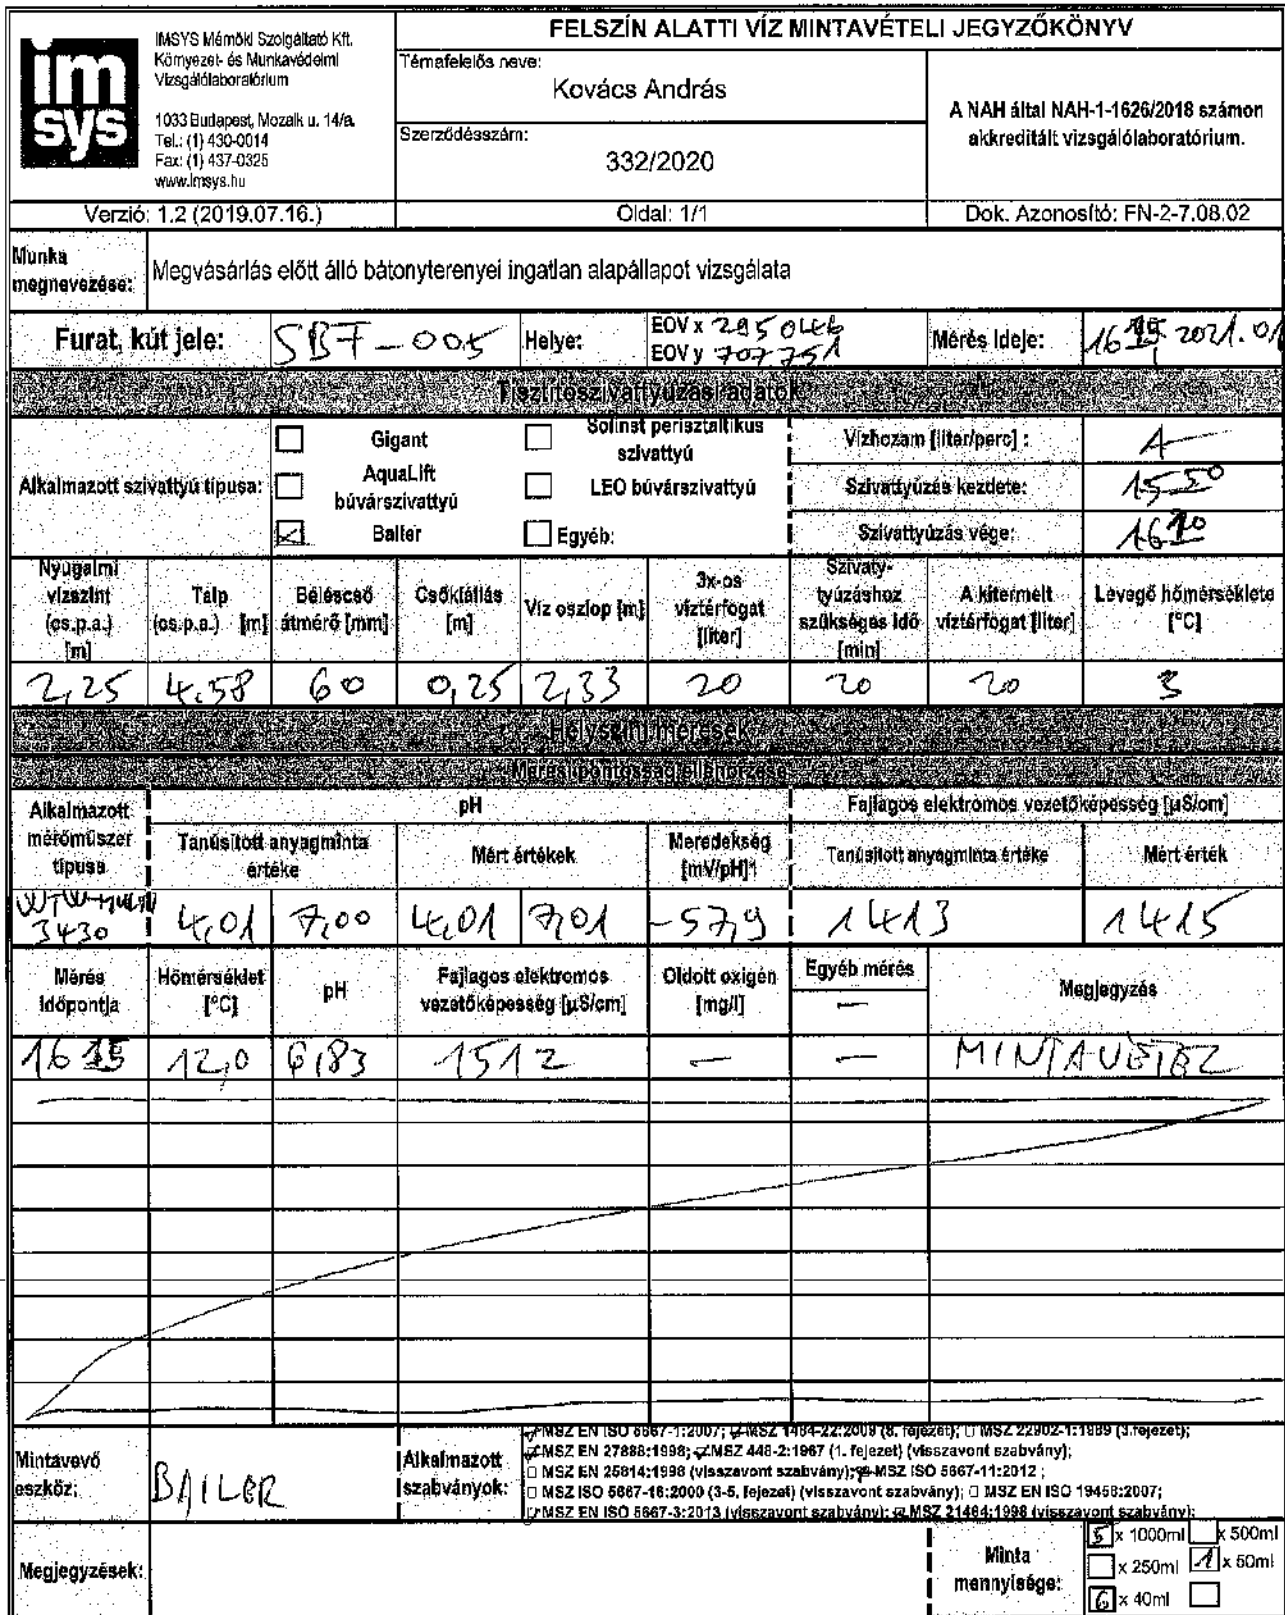 im
sys
IMSYS Mérnöki Szolgáltató Kft.
Környezet- és Munkavédelmi
Vizsgálólaboratórium
1033 Budapest, Mozaik u. 14/a.
Tel.: (1) 430-0014
Fax: (1) 437-0325
www.imsys.hu
FELSZÍN ALATTI VÍZ MINTAVÉTELI JEGYZŐKÖNYV
Témafelelős neve:
Kovács András
Szerződésszám:
332/2020
A NAH által NAH-1-1626/2018 számon
akkreditált vizsgálólaboratórium.
Verzió: 1.2 (2019.07.16.) Oldal: 1/1 Dok. Azonosító: FN-2-7.08.02
Munka
megnevezése:
Megvásárlás előtt álló bátonyterenyei ingatlan alapállapot vizsgálata
Furat, kút jele: SBF-005 Helye:
EOV x 295046
EOV y 707751
Mérés ideje: 16 15, 2021.01
Tisztítószivattyúzási adatok
Alkalmazott szivattyú típusa:
Gigant
Solinst perisztaltikus
szivattyú
AquaLift
búvárszivattyú
LEO búvárszivattyú
Bailer
Egyéb:
Vízhozam [liter/perc] : 1
Szivattyúzás kezdete: 15 50
Szivattyúzás vége: 16 10
Nyugalmi
vízszint
(cs.p.a.)
[m]
Talp
(cs.p.a.) [m]
Béléscső
átmérő [mm]
Csőkiállás
[m]
Víz oszlop [m]
3x-os
víztérfogat
[liter]
Szivaty-
tyúzáshoz
szükséges idő
[min]
A kitermelt
víztérfogat [liter]
Levegő hőmérséklete
[°C]
2,25 4,58 60 0,25 2,33 20 20 20 3
Helyszíni mérések
Mérési pontosság ellenőrzése
Alkalmazott
mérőműszer
típusa
pH
Fajlagos elektromos vezetőképesség [µS/cm]
Tanúsított anyagminta
értéke
Mért értékek
Meredekség
[mV/pH]
Tanúsított anyagminta értéke
Mért érték
WTW
3430
4,01 7,00 4,01 7,01 -57,9 1413 1415
Mérés
időpontja
Hőmérséklet
[°C]
pH
Fajlagos elektromos
vezetőképesség [µS/cm]
Oldott oxigén
[mg/l]
Egyéb mérés
—
Megjegyzés
16 15 12,0 6,83 1512 — — MINTAVÉTEL
Mintavevő
eszköz:
BAILER
Alkalmazott
szabványok:
MSZ EN ISO 5667-1:2007; MSZ 1484-22:2009 (8. fejezet); MSZ 22902-1:1989 (3.fejezet);
MSZ EN 27888:1998; MSZ 448-2:1967 (1. fejezet) (visszavont szabvány);
MSZ EN 25814:1998 (visszavont szabvány); MSZ ISO 5667-11:2012 ;
MSZ ISO 5667-18:2000 (3-5. fejezet) (visszavont szabvány); MSZ EN ISO 19458:2007;
MSZ EN ISO 5667-3:2013 (visszavont szabvány); MSZ 21464:1998 (visszavont szabvány);
Megjegyzések:
Minta
mennyisége:
5 x 1000ml x 500ml
x 250ml 1 x 50ml
6 x 40ml